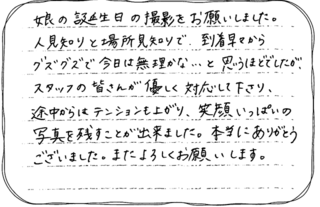 娘の誕生日の撮影をお願いしました。
人見知りと場所見知りで、到着早々から
グズグズで今日は無理かな…と思うほどでしたが、
スタッフの皆さんが優しく対応して下さり、
途中からはテンションも上がり、笑顔いっぱいの
写真を残すことが出来ました。本当にありがとう
ございました。またよろしくお願いします。